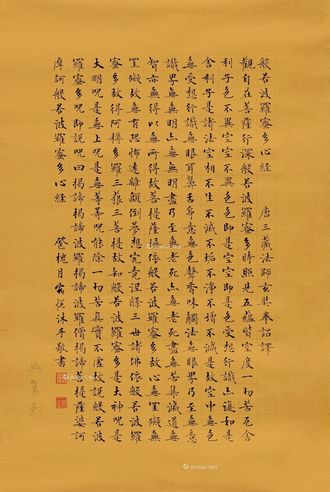 般若波羅蜜多心経 唐三藏法師玄奘奉詔譯
觀自在菩薩行深般若波羅蜜多時照見五蘊皆空度一切苦厄舍
利子色不異空空不異色色即是空空即是色受想行識亦復如是
舍利子是諸法空相不生不滅不垢不淨不增不減是故空中無色
無受想行識無眼耳鼻舌身意無色聲香味觸法無眼界乃至無意
識界無無明亦無無明盡乃至無老死亦無老死盡無苦集滅道無
智亦無得以無所得故菩提薩埵依般若波羅蜜多故心無罣礙無
罣礙故無有恐怖遠離顛倒夢想究竟涅槃三世諸佛依般若波羅
蜜多故得阿耨多羅三藐三菩提故知般若波羅蜜多是大神呪是
大明呪是無上呪是無等等呪能除一切苦真實不虛故說般若波
羅蜜多呪即說呪曰揭諦揭諦波羅揭諦波羅僧揭諦菩提薩婆訶
摩訶般若波羅蜜多心経 槐月 沐手敬書